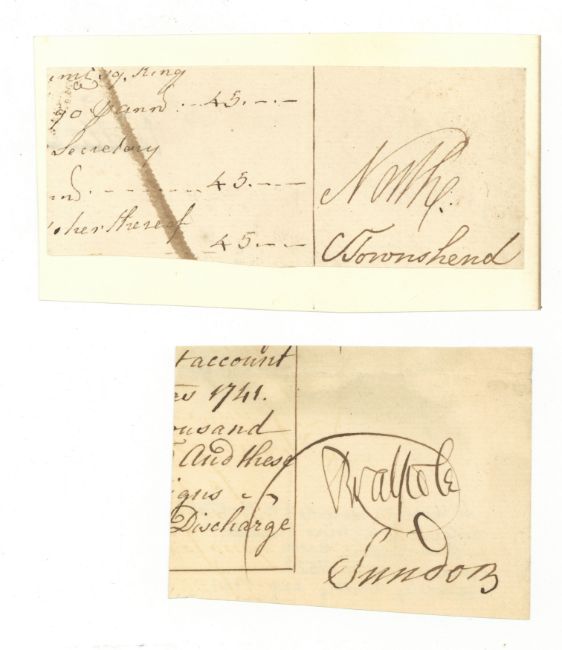 King
45.–.–
Secretary
45.–.–
thereof
45.–.–
North.
CTownshend
t account
1741.
ousand
And these
igns
Discharge
RWalpole
Sundon